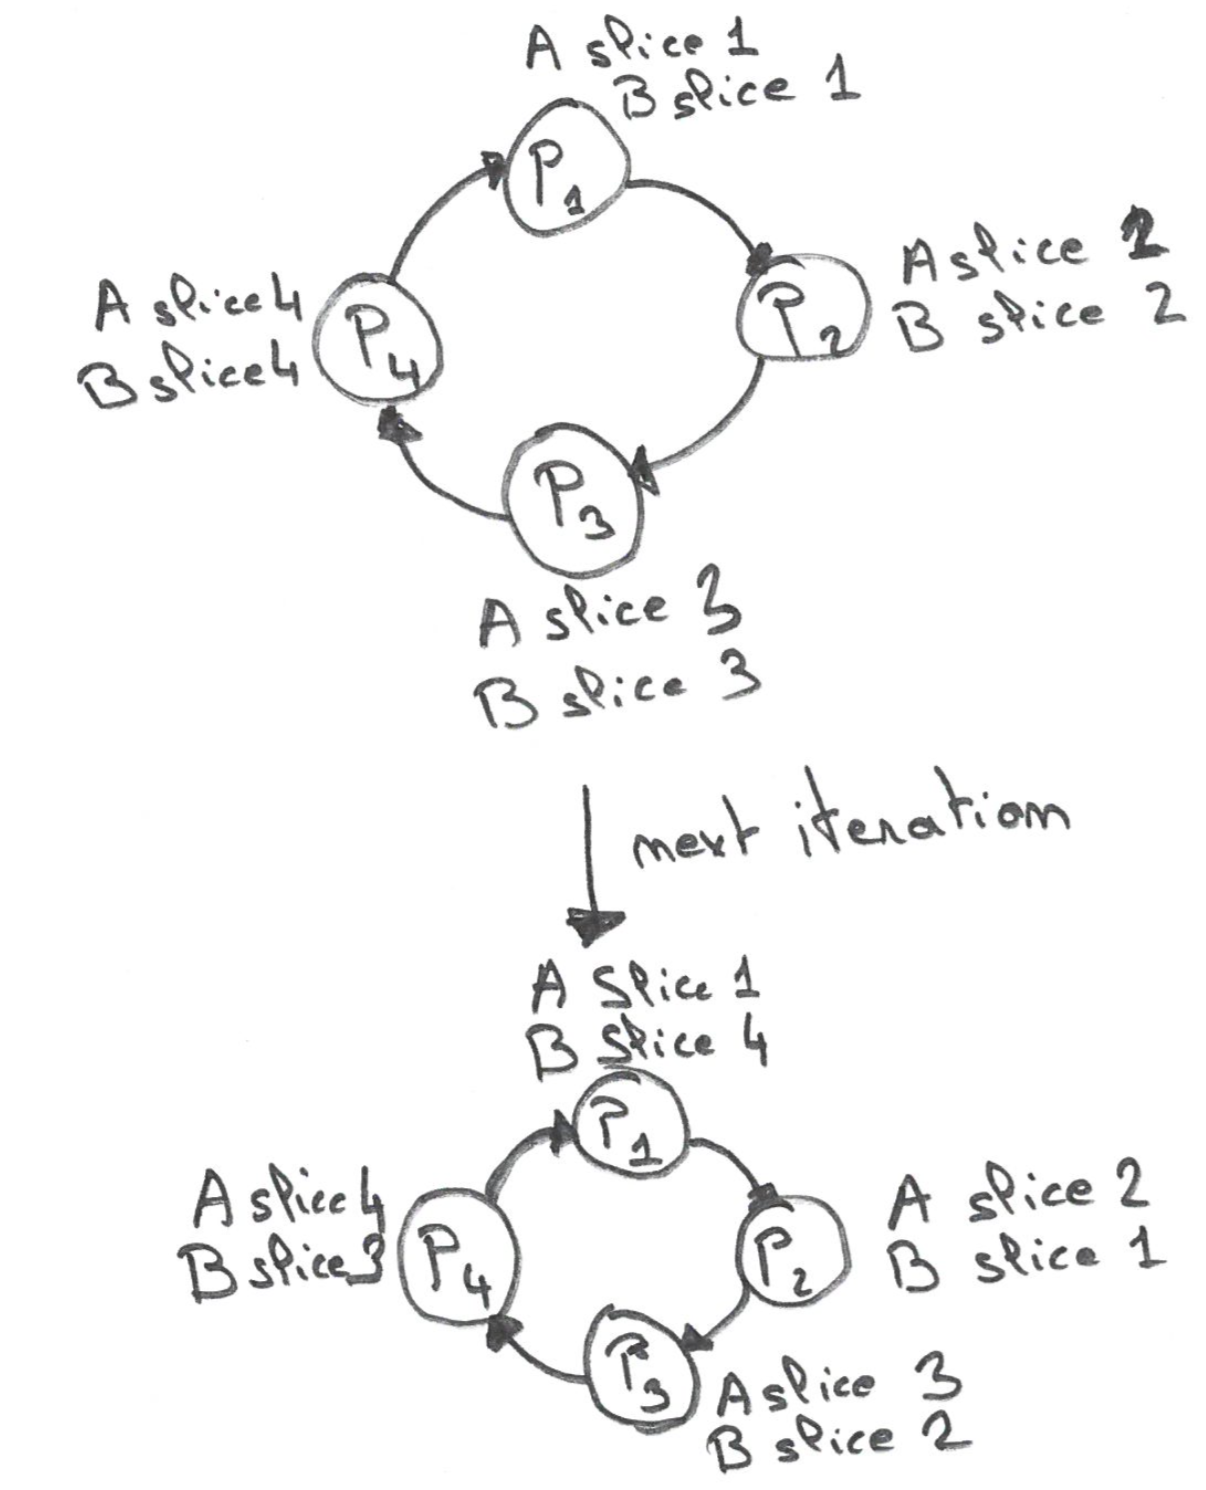 A slice 1
B slice 1
P1
A slice 2
B slice 2
P2
A slice 4
B slice 4
P4
P3
A slice 3
B slice 3
next iteration
A Slice 1
B Slice 4
P1
A slice 4
B slice 3
P4
P2
A slice 2
B slice 1
P3
A slice 3
B slice 2